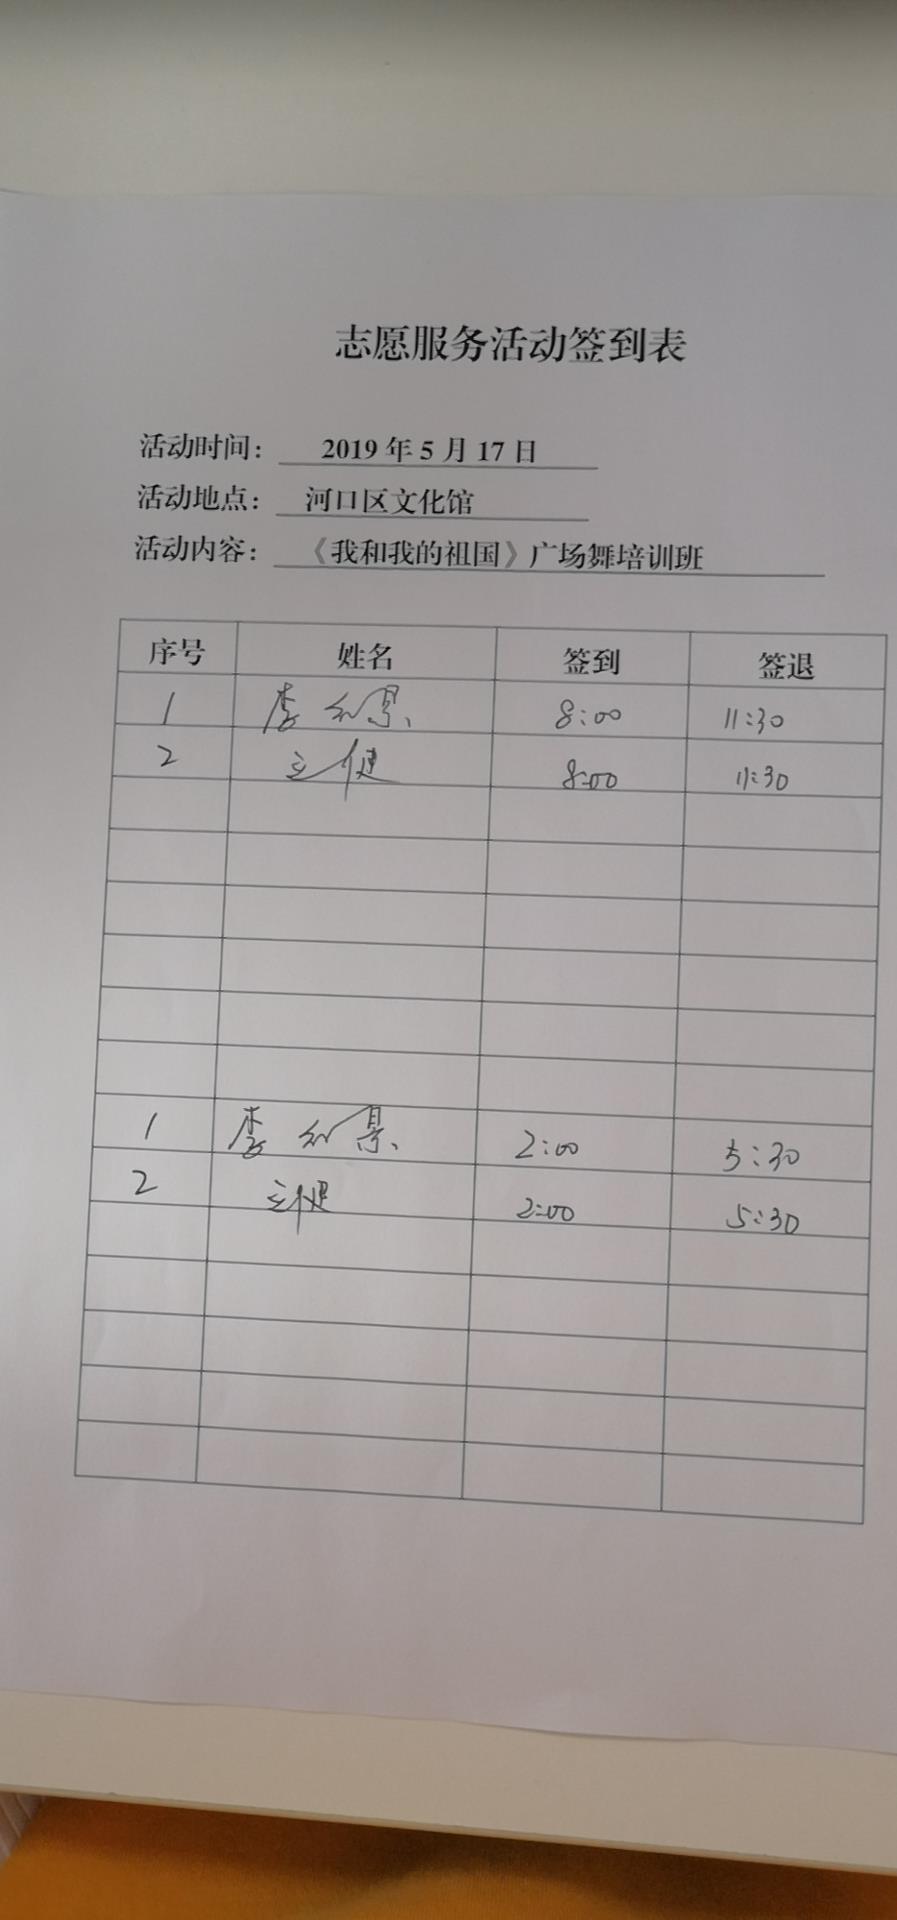 志愿服务活动签到表
活动时间： 2019 年 5 月 17 日
活动地点： 河口区文化馆
活动内容： 《我和我的祖国》广场舞培训班
序号 姓名 签到 签退
1 李红景 8:00 11:30
2 8:00 11:30
1 李红景 2:00 5:30
2 2:00 5:30